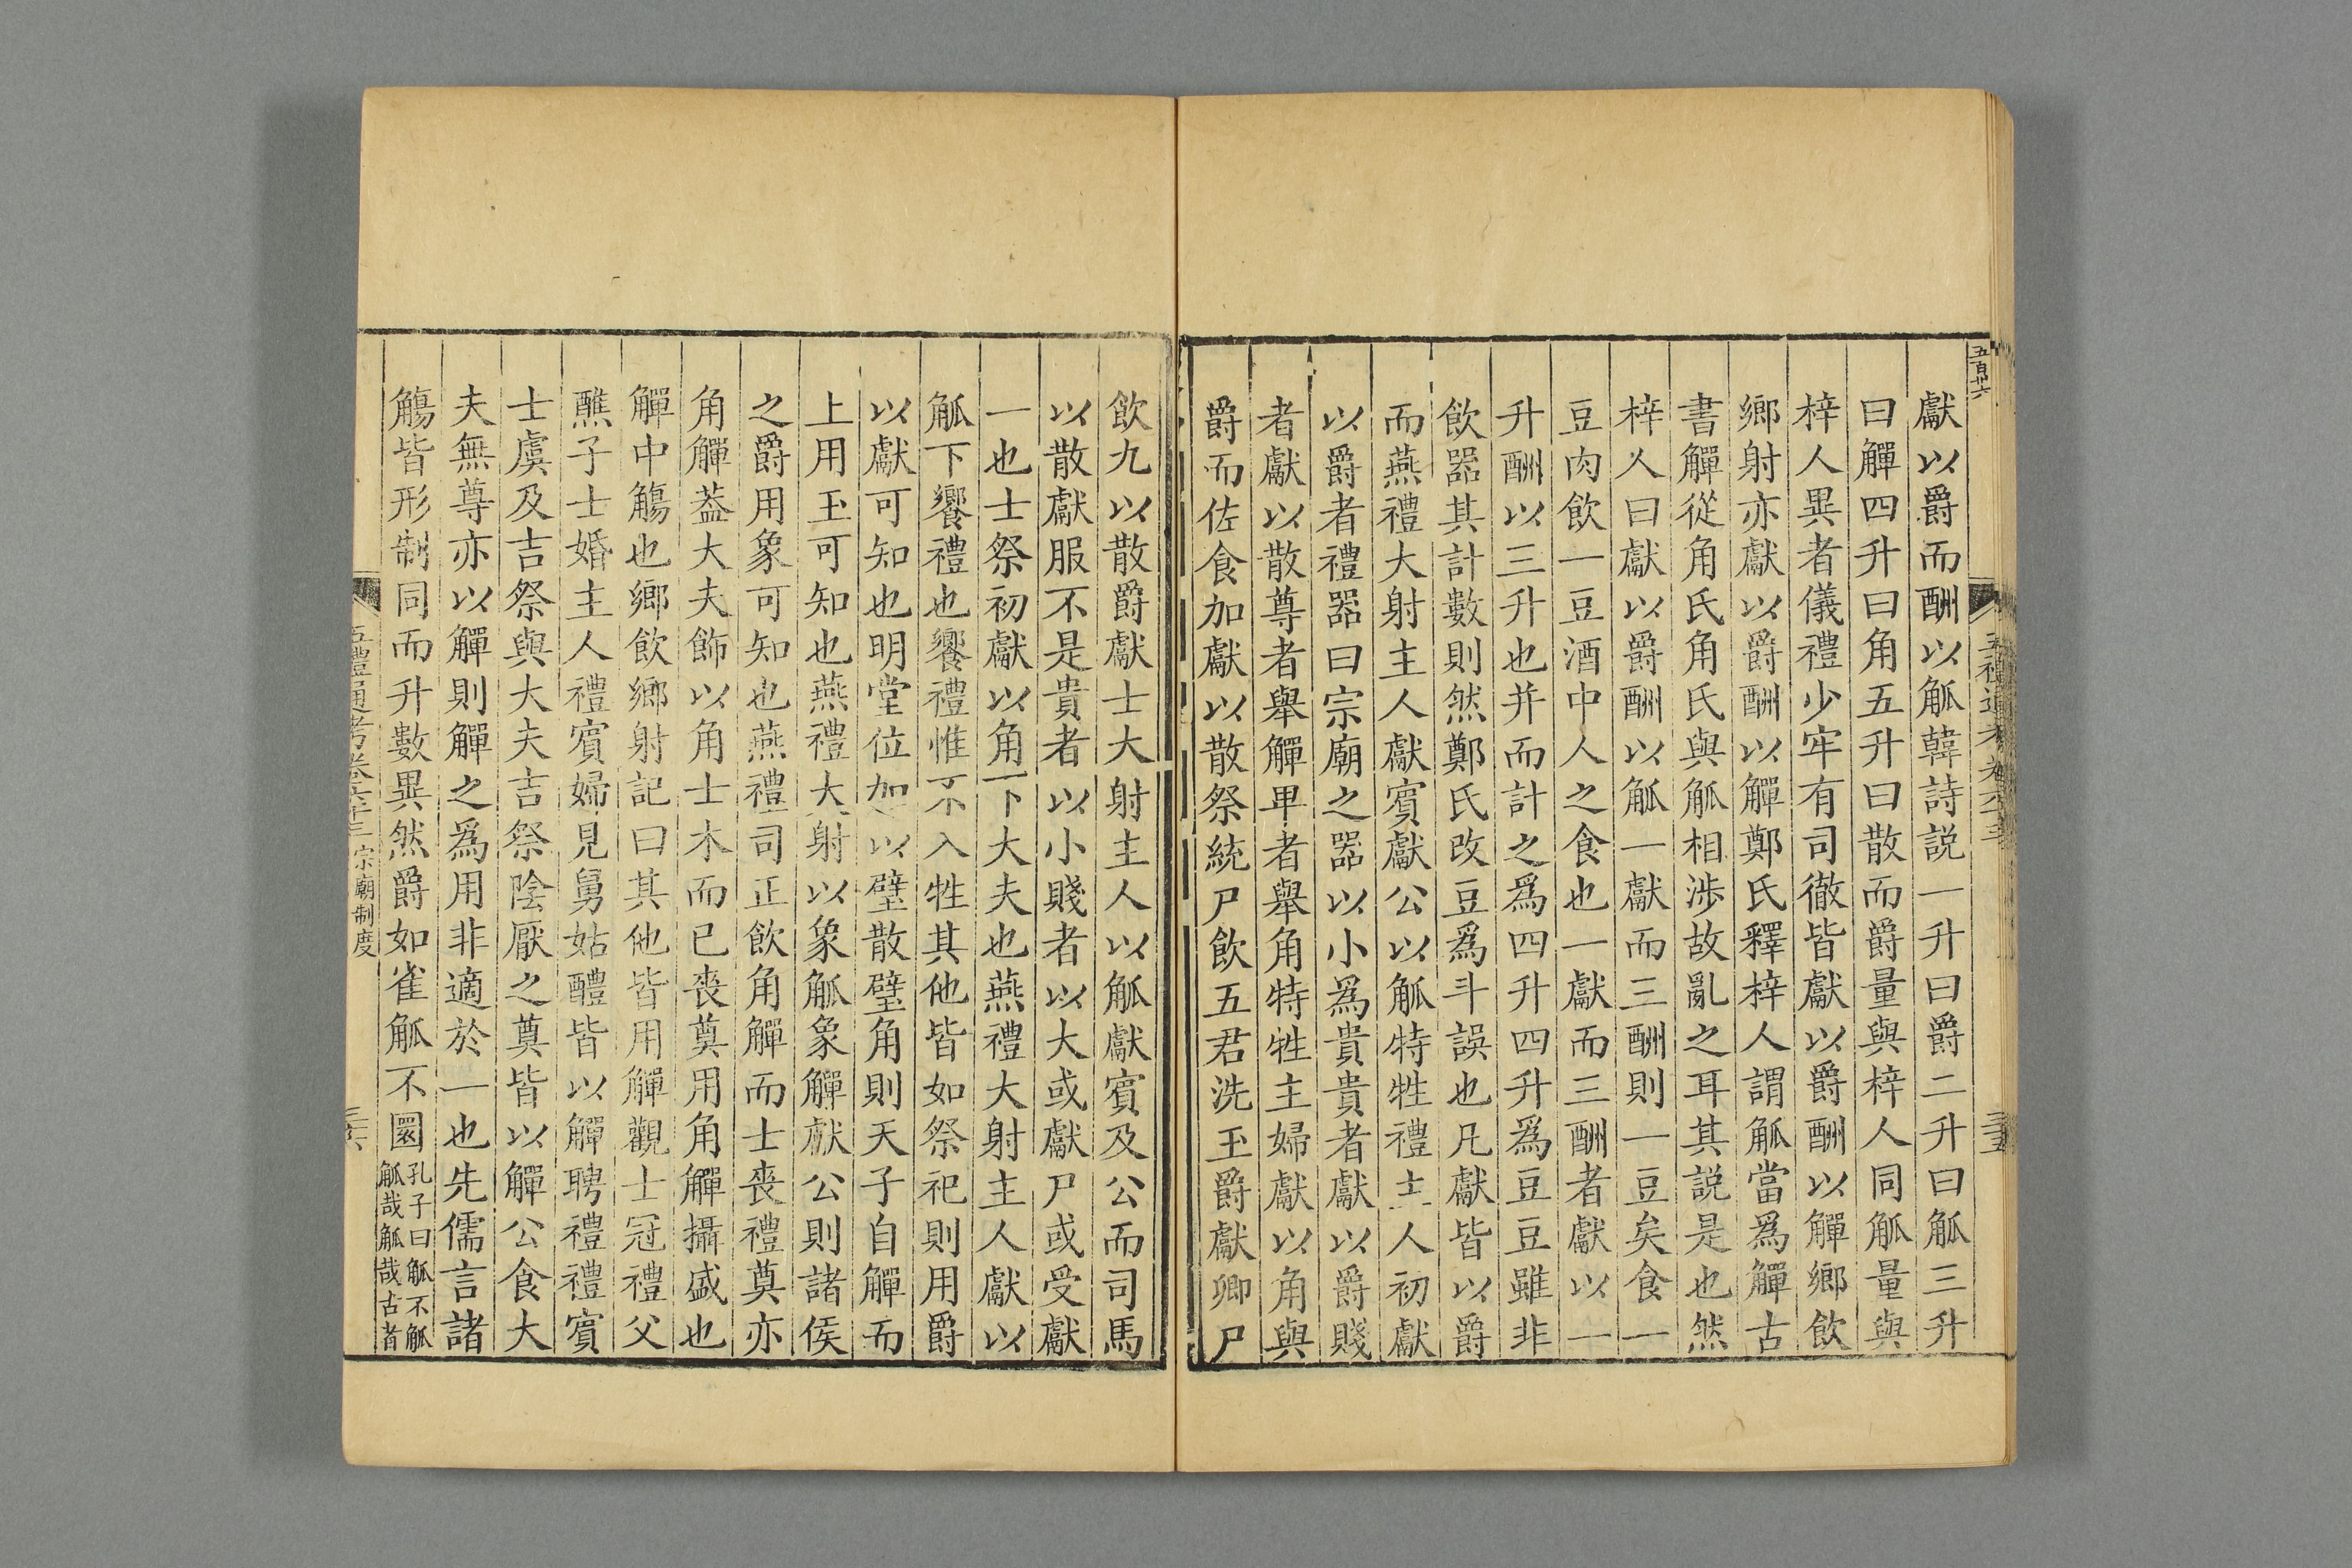 五百卅六
獻以爵而酬以觚韓詩説一升曰爵二升曰觚三升
曰觶四升曰角五升曰散而爵量與梓人同觚量與
梓人異者儀禮少牢有司徹皆獻以爵酬以觶鄉飲
鄉射亦獻以爵酬以觶鄭氏釋梓人謂觚當爲觶古
書觶從角氏角氏與觚相涉故亂之耳其説是也然
梓人曰獻以爵酬以觚一獻而三酬則一豆矣食一
豆肉飲一豆酒中人之食也一獻而三酬者獻以一
升酬以三升也并而計之爲四升四升爲豆豆雖非
飲器其計數則然鄭氏改豆爲斗誤也凡獻皆以爵
而燕禮大射主人獻賓獻公以觚特牲禮士人初獻
以爵者禮器曰宗廟之器以小爲貴貴者獻以爵賤
者獻以散尊者舉觶卑者舉角特牲主婦獻以角與
爵而佐食加獻以散祭統尸飲五君洗玉爵獻卿尸
飲九以散爵獻士大射主人以觚獻賓及公而司馬
以散獻服不是貴者以小賤者以大或獻尸或受獻
一也士祭初獻以角下大夫也燕禮大射主人獻以
觚下饗禮也饗禮惟不入牲其他皆如祭祀則用爵
以獻可知也明堂位加以璧散璧角則天子自觶而
上用玉可知也燕禮大射以象觚象觶獻公則諸侯
之爵用象可知也燕禮司正飲角觶而士喪禮奠亦
角觶葢大夫飾以角士木而已喪奠用角觶攝盛也
觶中觴也鄉飲鄉射記曰其他皆用觶觀士冠禮父
醮子士婚主人禮賓婦見舅姑醴皆以觶聘禮禮賓
士虞及吉祭與大夫吉祭陰厭之奠皆以觶公食大
夫無尊亦以觶則觶之爲用非適於一也先儒言諸
觴皆形制同而升數異然爵如雀觚不圜孔子曰觚不觚
觚哉觚哉古者
五禮通考卷六十三 宗廟制度 三六